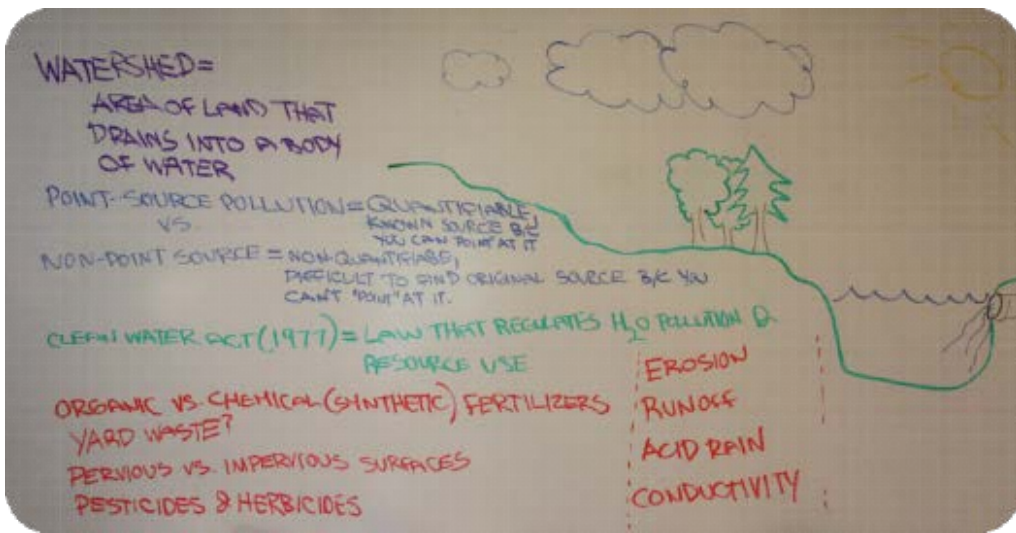 WATERSHED=
AREA OF LAND THAT
DRAINS INTO A BODY
OF WATER
POINT-SOURCE POLLUTION = QUANTIFIABLE,
KNOWN SOURCE B/C
YOU CAN "POINT" AT IT
VS
NON-POINT SOURCE = NON-QUANTIFIABLE,
DIFFICULT TO FIND ORIGINAL SOURCE B/C YOU
CAN'T "POINT" AT IT.
CLEAN WATER ACT (1977) = LAW THAT REGULATES H₂O POLLUTION &
RESOURCE USE
ORGANIC VS. CHEMICAL (SYNTHETIC) FERTILIZERS
YARD WASTE?
PERVIOUS VS. IMPERVIOUS SURFACES
PESTICIDES & HERBICIDES
EROSION
RUNOFF
ACID RAIN
CONDUCTIVITY